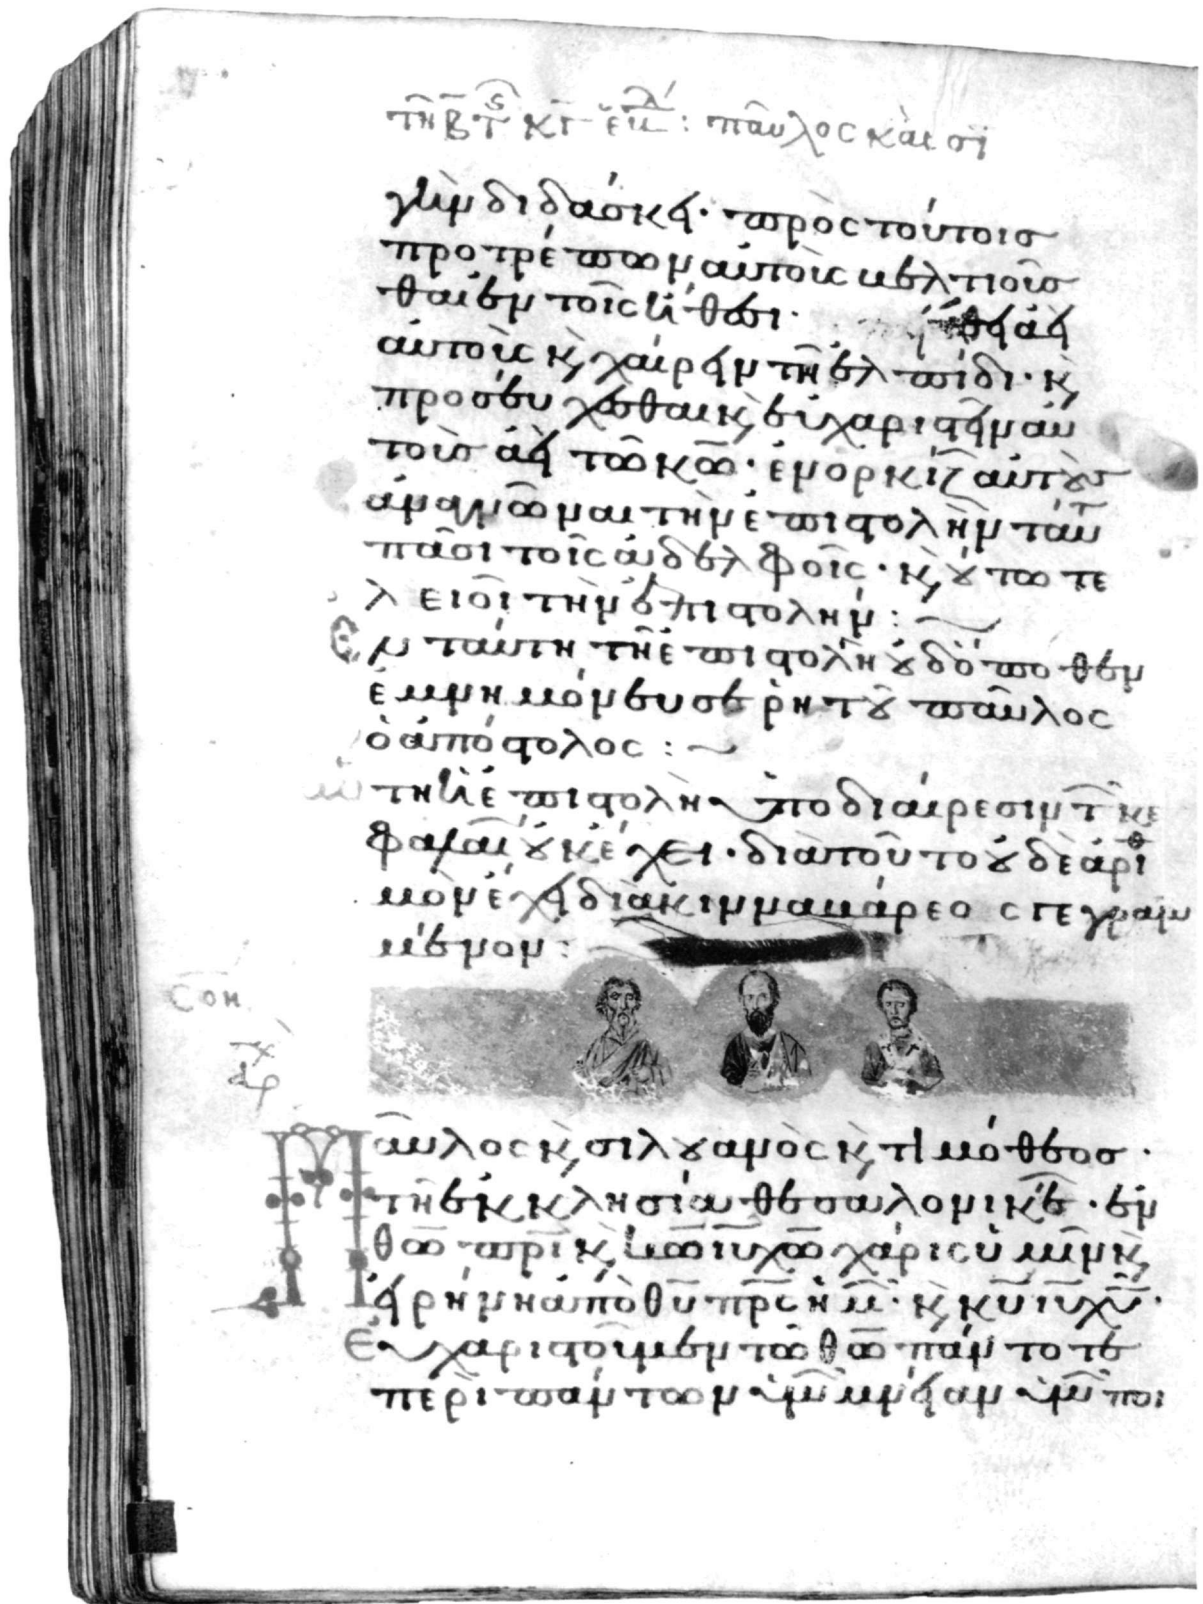 τῇ Β τῆς κγ ἑβ : παῦλος καὶ σι
γὰμ διδάσκει· πρὸς τούτοις
προτρέπων αὐτοὺς βελτιοῦσ
θαι ἐν τοῖς ἤθεσι· ἀεὶ
αὐτοὺς κ, χαίρειν τῇ ἐλπίδι· κ,
προσεύχεσθαι κ, εὐχαριστεῖν αὐ
τοὺς ἀεὶ τῶ κω· ἐνορκίζ αὐτοὺς
ἀναγνῶναι τὴν ἐπιστολὴν ταύτ
πᾶσι τοῖς ἀδελφοῖς· κ, οὕτω τε
λειοῖ τὴν ἐπιστολήν :
Ἐν ταύτη τῇ ἐπιστολῇ οὐδόποθεν
ἐμνημόνευσε ῥητοῦ παῦλος
ὁ ἀπόστολος :
τη ἐπιστολὴ ὑποδιαίρεσιν τ κε
φαλαί οὐκ ἔχει· διὰ τοῦτο οὐδὲ ἀριθ
μὸν ἔχει διὰ κινναβάρεος γεγραμ
μένον :
Παῦλος κ, σιλουανὸς κ, τιμόθεος·
τῇ ἐκκλησία θεσσαλονικε· ἐν
θω πρι κ, κω ιυ χω χάρις ὑμῖν κ,
εἰρήνη ἀπὸ θυ πρς ἡμ· κ, κυ ιυ χυ·
Εὐχαριστοῦμεν τῶ θω πάντοτε
περὶ πάντων ὑμ μνείαν ὑμ ποι